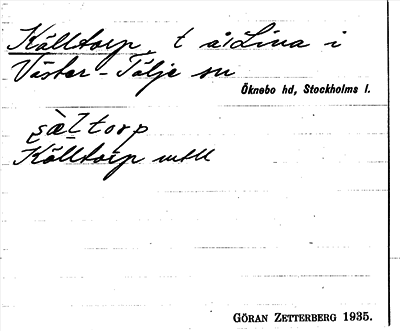 Källtorp, t å! Lina i
Väster-Tälje sn
Öknebo hd, Stockholms l.
Källtorp mtll
GÖRAN ZETTERBERG 1935.